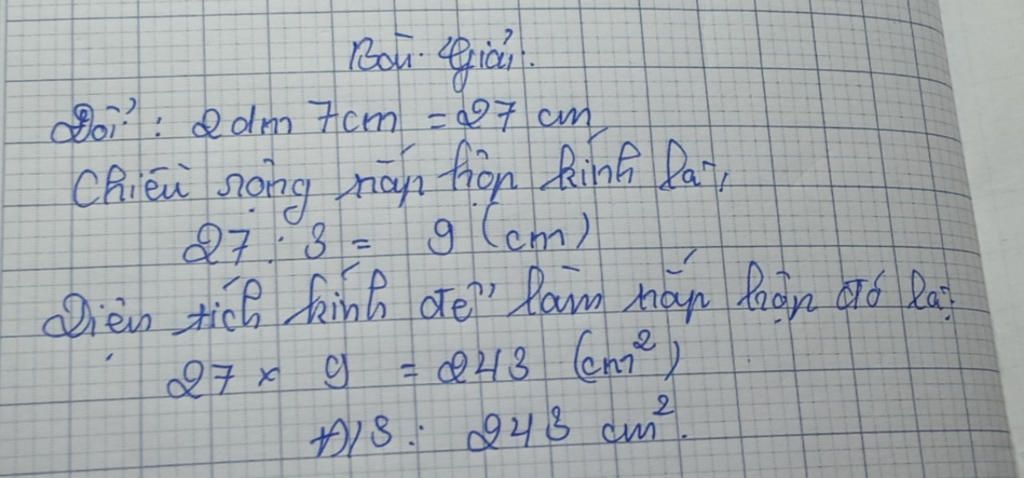 Bài Giải.
Đổi: 2dm 7cm = 27 cm
Chiều rộng nắp hộp kính là:
27 : 3 = 9 (cm)
Diện tích kính để làm nắp hộp đó là:
27 x 9 = 243 (cm²)
Đ/S: 243 cm².